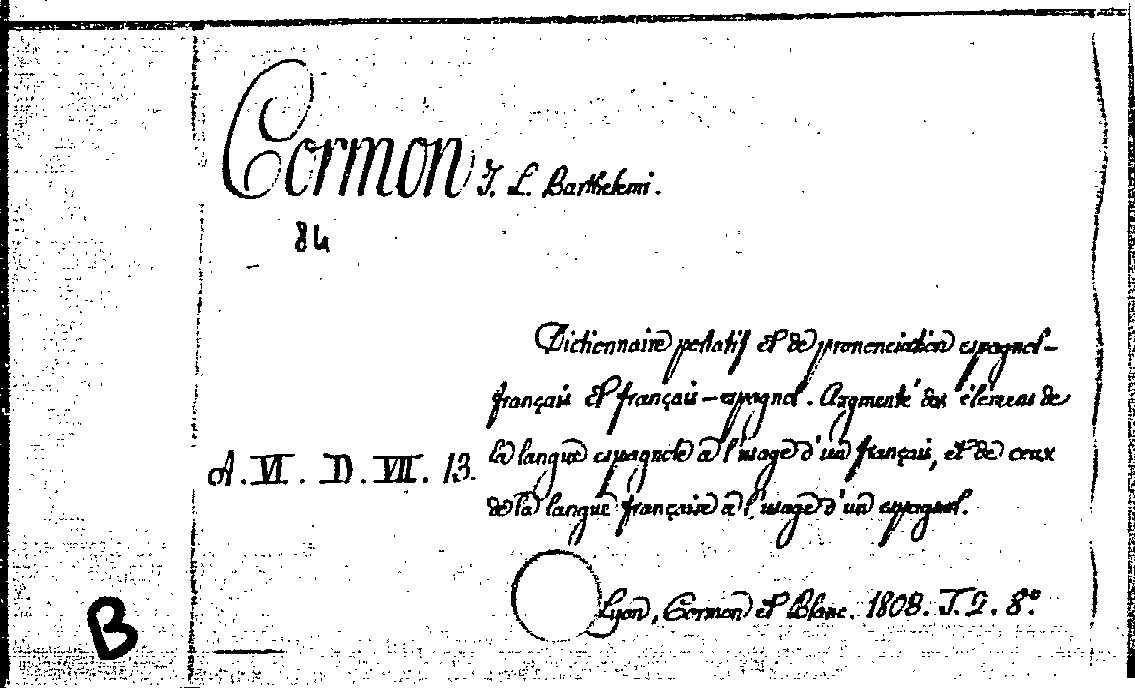 Cormon J. L. Barthelemi.
84
Dictionnaire portatif et de prononciation espagnol-
français et français-espagnol. Augmenté des élémens de
A. VI. D. VII. 13. la langue espagnole à l'usage d'un français, et de ceux
de la langue française à l'usage d'un espagnol.
Lyon, Cormon et Blanc. 1808. T. 2. 8º.
B